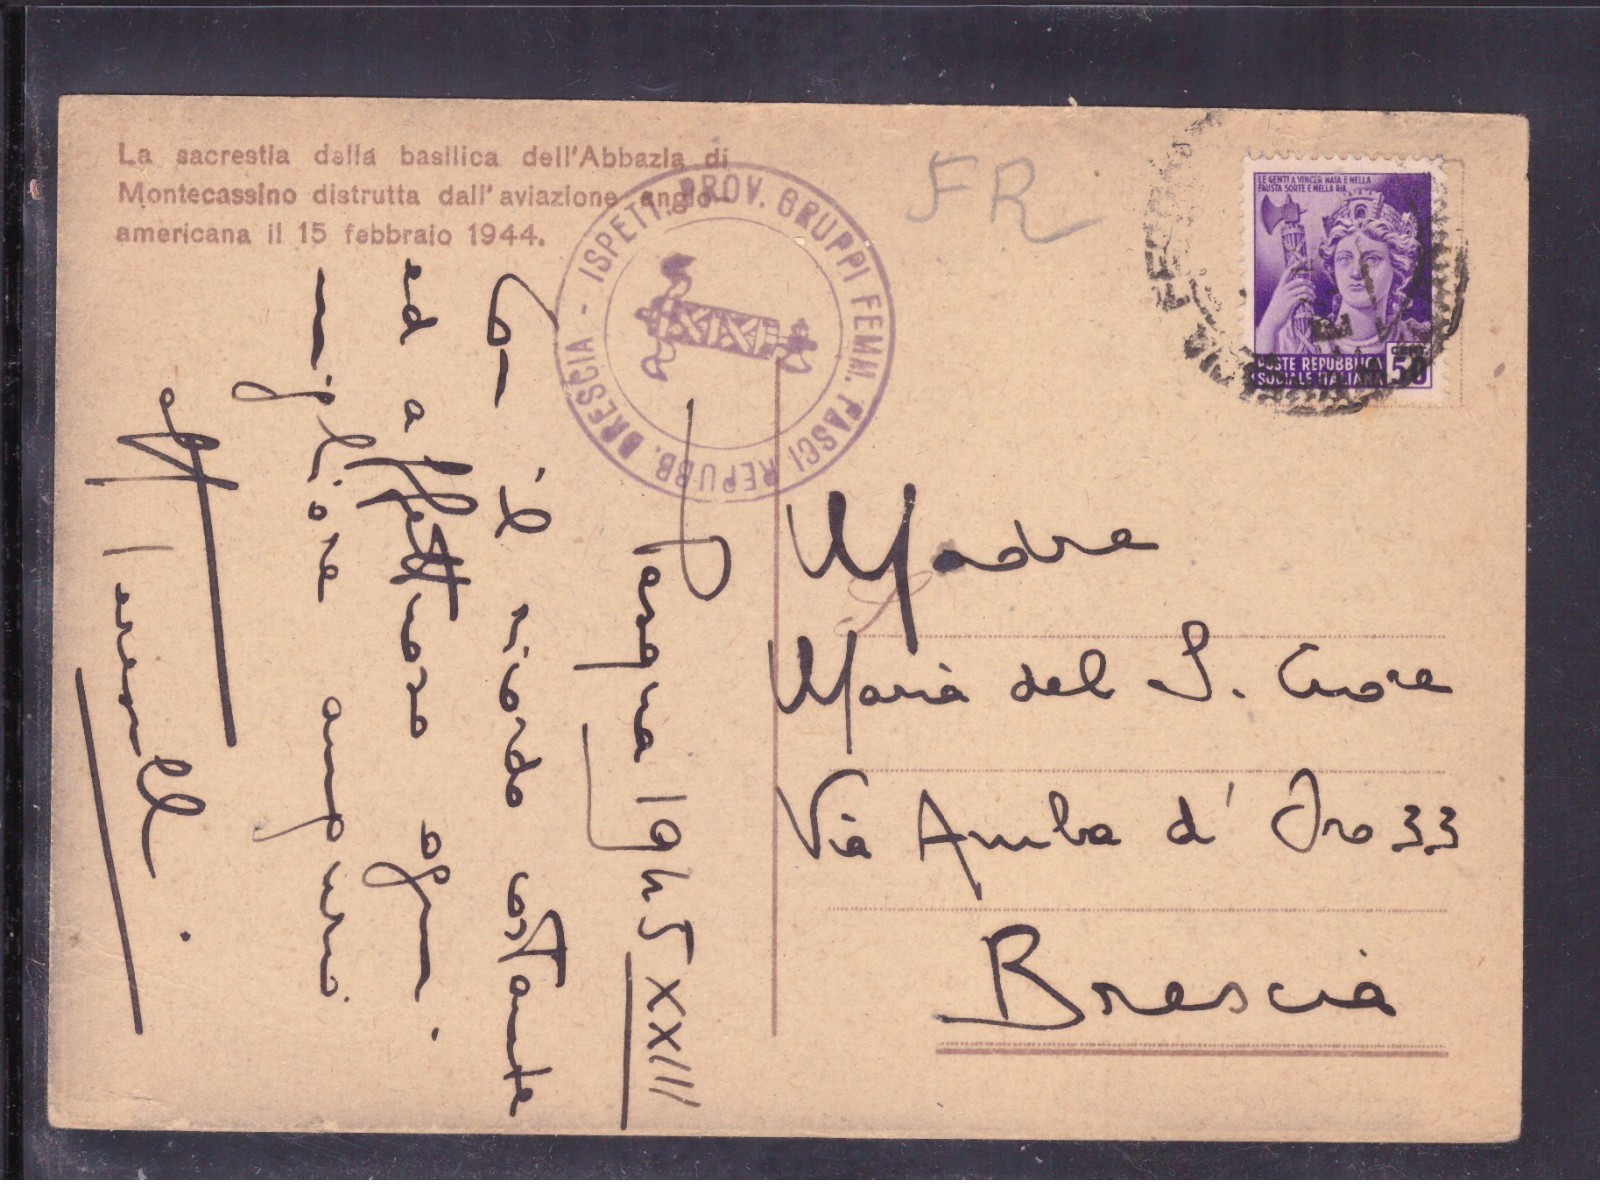 La sacrestia della basilica dell'Abbazia di
Montecassino distrutta dall'aviazione anglo-
americana il 15 febbraio 1944.
BRESCIA - ISPETT. PROV. GRUPPI FEMM. FASCI REPUBB. BRESCIA
FR
LE GENTI A VINCER NATA E NELLA
FAUSTA SORTE E NELLA RIA
CENT.
POSTE REPUBBLICA
SOCIALE ITALIANA 50
Pasqua 1945 XXIII
Con il ricordo costante
ed affettuoso ogni
migliore augurio.
Madre
Maria del S. Cuore
Via Amba d'Oro 33
Brescia